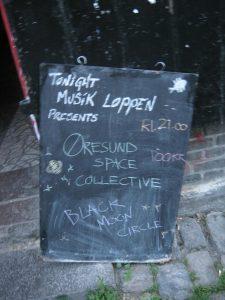 TONIGHT
MUSIK LOPPEN
PRESENTS
KL. 21.00
ØRESUND
SPACE
100 KR
COLLECTIVE
BLACK
MOON
CIRCLE